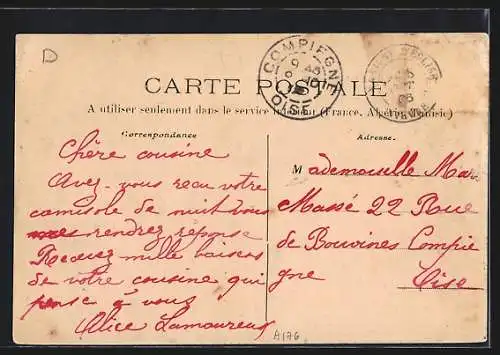 D
COMPIEGNE
OISE
CARTE POSTALE
A utiliser seulement dans le service intérieur (France, Algérie, Tunisie)
Correspondance
Chère cousine
Avez-vous recu votre
camisole de nuit vous
me rendrez reponse
Recevez mille baisers
de votre cousine qui
pense à vous
Alice Lamoureux
Adresse.
Mademoiselle Mar
Massé 22 Rue
de Bouvines Compie
gne Oise
A176